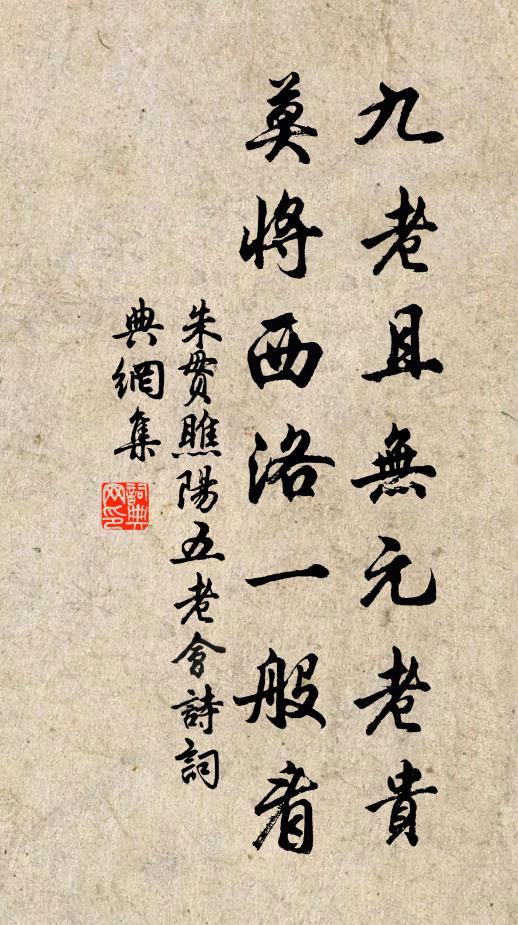 九老且無元老貴
莫將西洛一般看
朱貫瞧陽五老會詩詞
典網集
詞典
网印